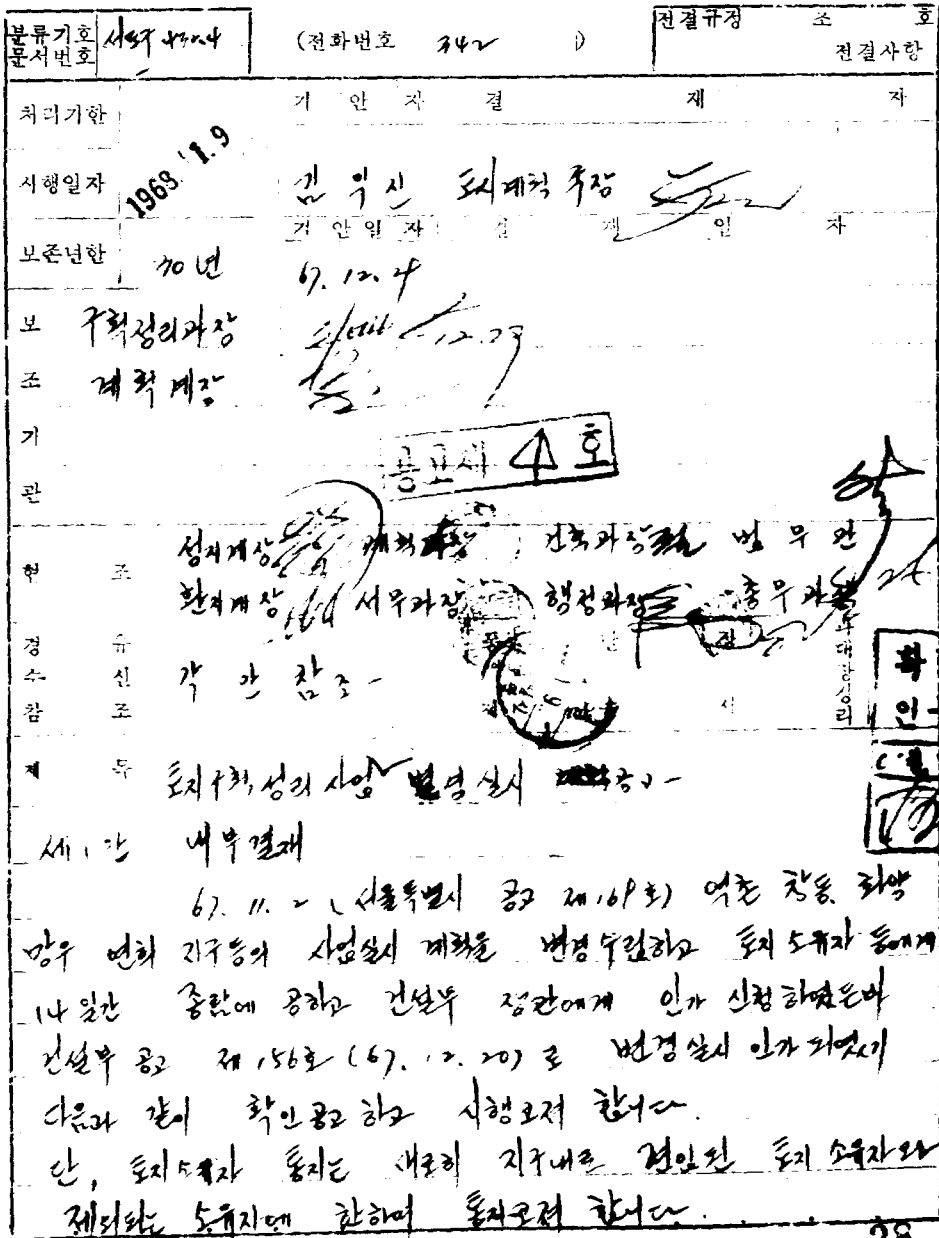 분류기호 문서번호 (전화번호 342 ) 전결규정 조 호 전결사항
처리기한 기안자 결재자
시행일자 1968. 1. 9 김 도시계획국장
기안일자 결재일자
보존년한 30년 67. 12. 4
보 구획정리과장 12.29
조 계획계장
기 공고제 4호
관
협조 계장 건축과장 법무관
환지계장 서무과장 행정과장 총무과장
경유
수신 각안참조-
참조
확인
제목 토지구획정리사업 변경실시 공고-
제1안 내부결재
67. 11. 2 (서울특별시 공고 제169호) 역촌 창동 화양
망우 연희 지구등의 사업실시 계획을 변경수립하고 토지 소유자 등에게
14일간 종람에 공하고 건설부 장관에게 인가 신청하였든바
건설부 공고 제156호 (67. 12. 20)로 변경실시 인가 되였기
다음과 같이 확인공고하고 시행코저 합니다.
단, 토지소유자 통지는 새로히 지구내로 편입된 토지 소유자와
제외되는 소유자에 한하여 통지코저 합니다.
28